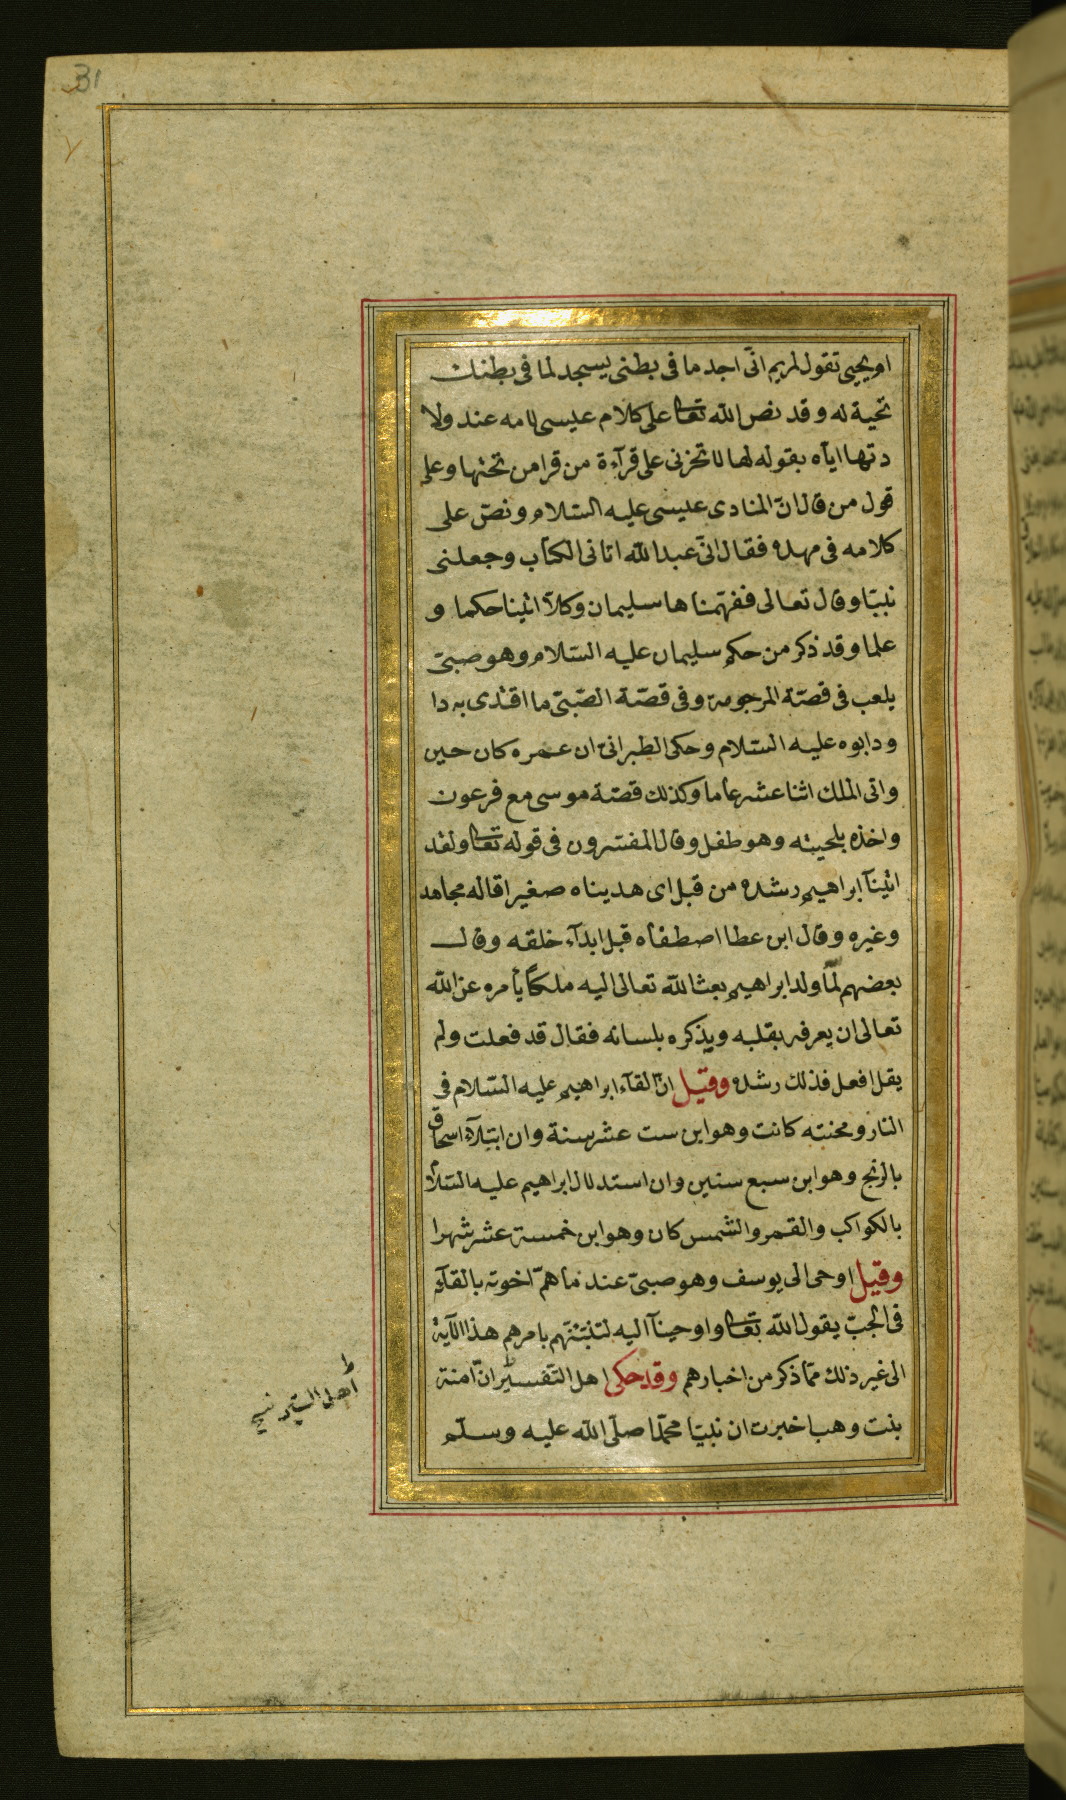 31
او يحيى تقول لمريم انّى اجد ما فى بطنى يسجد لما فى بطنك
تحية له وقد نص الله تعا على كلام عيسى لامه عند ولا
دتها اياه بقوله لها لا تحزنى على قرآءة من قرا من تحتها وعلى
قول من قال انّ المنادى عيسى عليه السّلام ونصّ على
كلامه فى مهده فقال انّى عبد الله اتانى الكتاب وجعلنى
نبيّا وقال تعالى ففهّمناها سليمان وكلّا اتينا حكما و
علما وقد ذكر من حكم سليمان عليه السّلام وهو صبىّ
يلعب فى قصّة المرجومة وفى قصّة الصّبىّ ما اقتدى به دا
ود ابوه عليه السّلام وحكى الطبرانى ان عمره كان حين
واتى الملك اثنا عشر عاما وكذلك قصّة موسى مع فرعون
واخذه بلحيته وهو طفل وقال المفسّرون فى قوله تعا ولقد
اتينآ ابراهيم رشده من قبل اى هديناه صغيرا قاله مجاهد
وغيره وقال ابن عطا اصطفاه قبل ابدآء خلقه وقال
بعضهم لمّا ولد ابراهيم بعث الله تعالى اليه ملكًا يأمره عن الله
تعالى ان يعرفه بقلبه ويذكره بلسانه فقال قد فعلت ولم
يقل افعل فذلك رشده وقيل انّ القآء ابراهيم عليه السّلام فى
النار ومحنته كانت وهو ابن ست عشر سنة وان ابتلآء اسحاق
بالذبح وهو ابن سبع سنين وان استدلال ابراهيم عليه السّلا
بالكواكب والقمر والشمس كان وهو ابن خمسة عشر شهرا
وقيل اوحى الى يوسف وهو صبىّ عند ما همّ اخوته بالقآئه
فى الجبّ يقول الله تعا واوحينآ اليه لتنبّئنّهم بامرهم هذا الآية
الى غير ذلك ممّا ذكر من اخبارهم وقد حكى اهل التّفسير انّ امنة
بنت وهب اخبرت ان نبيّنا محمّدا صلّى الله عليه وسلّم
ط
اهل السّير